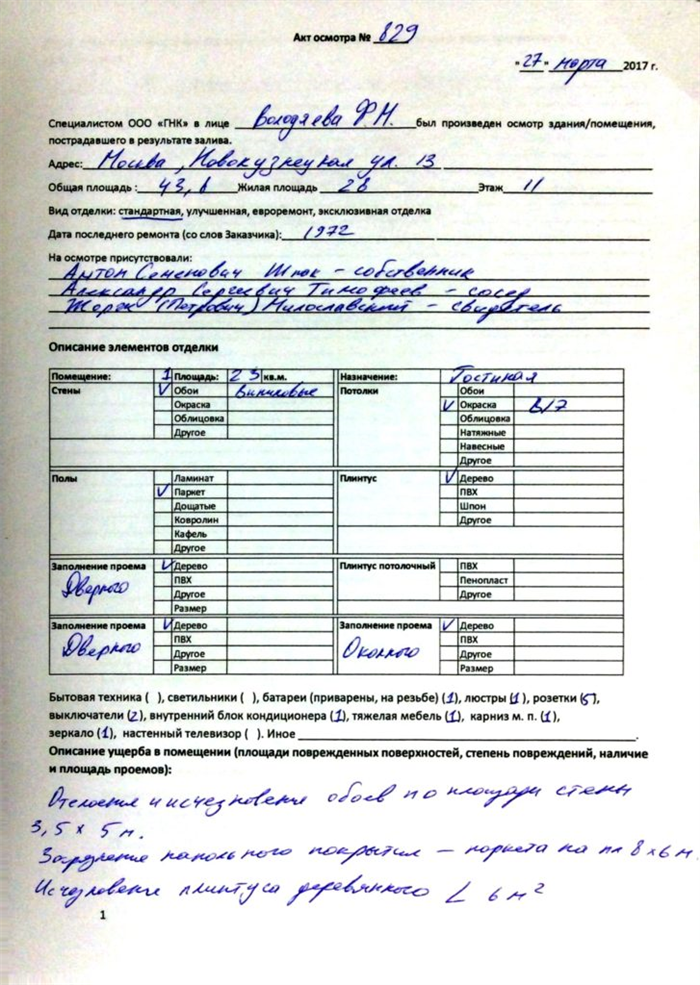 Акт осмотра № 829
"27" марта 2017 г.
Специалистом ООО «ГНК» в лице Володяева Ф.М. был произведен осмотр здания/помещения,
пострадавшего в результате залива.
Адрес: Москва, Новокузнецкая ул. 13
Общая площадь : 43,1 Жилая площадь 28 Этаж 11
Вид отделки: стандартная, улучшенная, евроремонт, эксклюзивная отделка
Дата последнего ремонта (со слов Заказчика): 1972
На осмотре присутствовали:
Антон Семенович Шпак - собственник
Александр Сергеевич Тимофеев - сосед
Жорж (Петрович) Милославский - свидетель
Описание элементов отделки
Помещение: 1 Площадь: 23 кв.м. Назначение: Гостиная
Стены V Обои Виниловые Потолки Обои
Окраска V Окраска В/Э
Облицовка Облицовка
Другое Натяжные
Навесные
Другое
Полы Ламинат Плинтус V Дерево
V Паркет ПВХ
Дощатые Шпон
Ковролин Другое
Кафель
Другое
Заполнение проема V Дерево Плинтус потолочный ПВХ
Дверного ПВХ Пенопласт
Другое Другое
Размер
Заполнение проема V Дерево Заполнение проема V Дерево
Дверного ПВХ Оконного ПВХ
Другое Другое
Размер Размер
Бытовая техника ( ), светильники ( ), батареи (приварены, на резьбе) (1), люстры (1), розетки (5),
выключатели (2), внутренний блок кондиционера (1), тяжелая мебель (1), карниз м. п. (1),
зеркало (1), настенный телевизор ( ). Иное
Описание ущерба в помещении (площади поврежденных поверхностей, степень повреждений, наличие
и площадь проемов):
Отслоение и исчезновение обоев по площади стены
3,5 x 5 м.
напольного покрытия - паркета на пл 8x6 м.
Исчезновение плинтуса деревянного L 6 м²
1